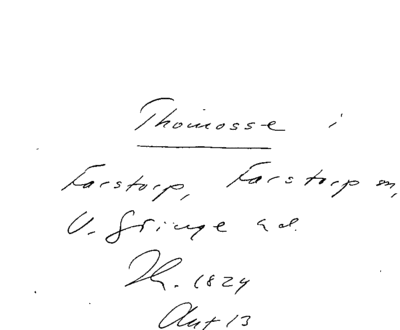 Thomosse i
Farstorp, Farstorp sn,
V. Göinge hd.
Th. 1824
Ant 13